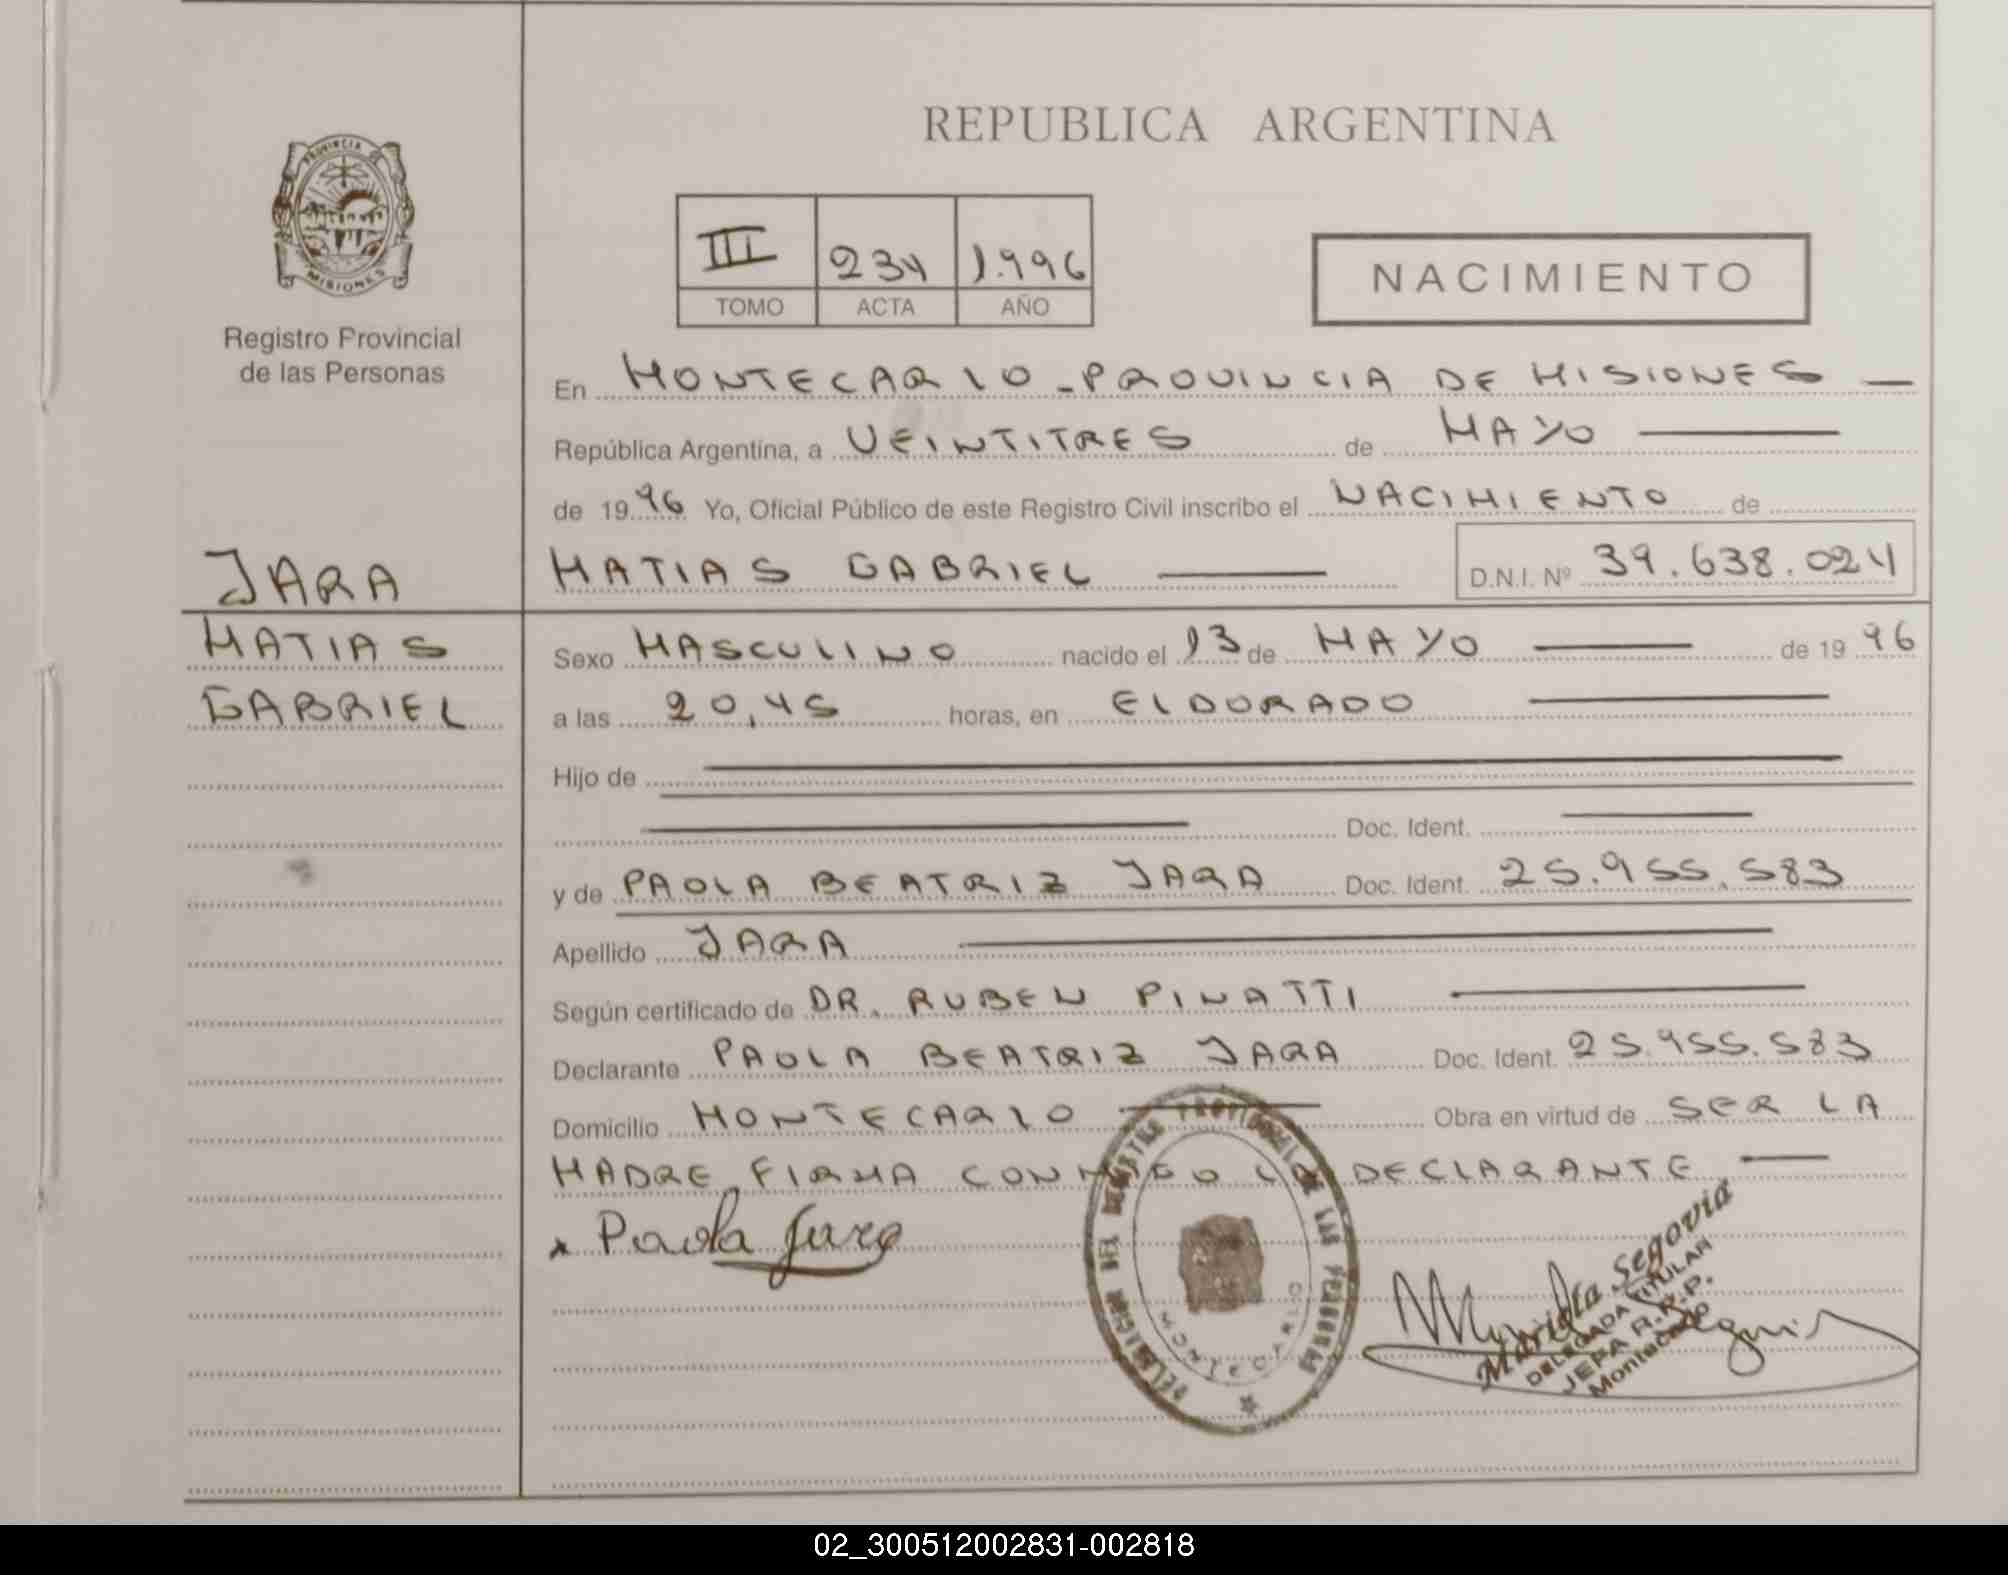 REPUBLICA ARGENTINA
PROVINCIA DE
MISIONES
Registro Provincial
de las Personas
III 234 1.996
TOMO ACTA AÑO
NACIMIENTO
En MONTECARLO - PROVINCIA DE MISIONES —
República Argentina, a VEINTITRES de MAYO
de 1996 Yo, Oficial Público de este Registro Civil inscribo el NACIMIENTO de
JARA
MATIAS
GABRIEL
MATIAS GABRIEL D.N.I. Nº 39.638.024
Sexo MASCULINO nacido el 13 de MAYO de 1996
a las 20,45 horas, en ELDORADO
Hijo de
Doc. Ident.
y de PAOLA BEATRIZ JARA Doc. Ident. 25.955.583
Apellido JARA
Según certificado de DR. RUBEN PINATTI
Declarante PAOLA BEATRIZ JARA Doc. Ident. 25.955.583
Domicilio MONTECARLO Obra en virtud de SER LA
MADRE, FIRMA CONMIGO LA DECLARANTE —
x Paola Jara
DELEGACION DEL REGISTRO PROVINCIAL DE LAS PERSONAS
MONTECARLO
Mariela Segovia
DELEGADA TITULAR
JEFA R.P.P.
Montecarlo
02_300512002831-002818